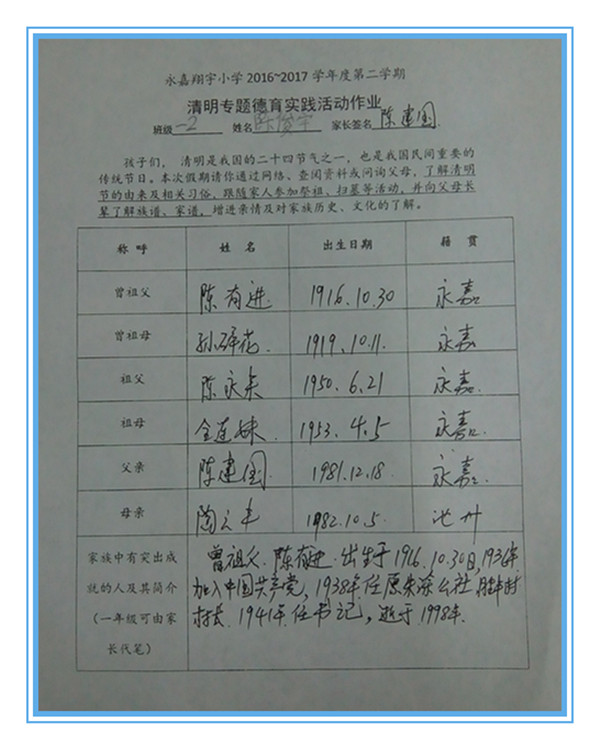 永嘉翔宇小学 2016~2017 学年度第二学期
清明专题德育实践活动作业
班级 一2 姓名 陈 宇 家长签名 陈建国
孩子们， 清明是我国的二十四节气之一，也是我国民间重要的
传统节日。本次假期请你通过网络、查阅资料或问询父母，了解清明
节的由来及相关习俗，跟随家人参加祭祖、扫墓等活动，并向父母长
辈了解族谱、家谱，增进亲情及对家族历史、文化的了解。
称 呼 姓 名 出生日期 籍 贯
曾祖父 陈有进 1916.10.30 永嘉
曾祖母 孙 花. 1919.10.11. 永嘉
祖父 陈永 1950.6.21 永嘉.
祖母 金连妹. 1953.4.5 永嘉.
父亲 陈建国. 1981.12.18. 永嘉.
母亲 陶 1982.10.5. 池州
家族中有突出成
就的人及其简介
（一年级可由家
长代笔）
曾祖父.陈有进.出生于1916.10.30日,1936年
加入中国共产党,1938年任原朱涂公社 村
村长.1941年任书记,逝于1998年.